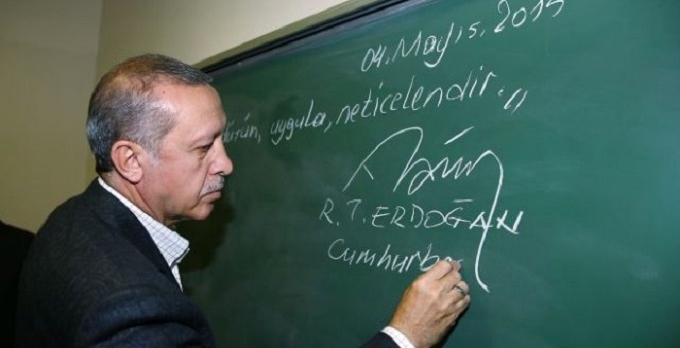 04.Mayıs.2015
uygula, neticelendir.,,
R.T.ERDOĞAN
Cumhurba